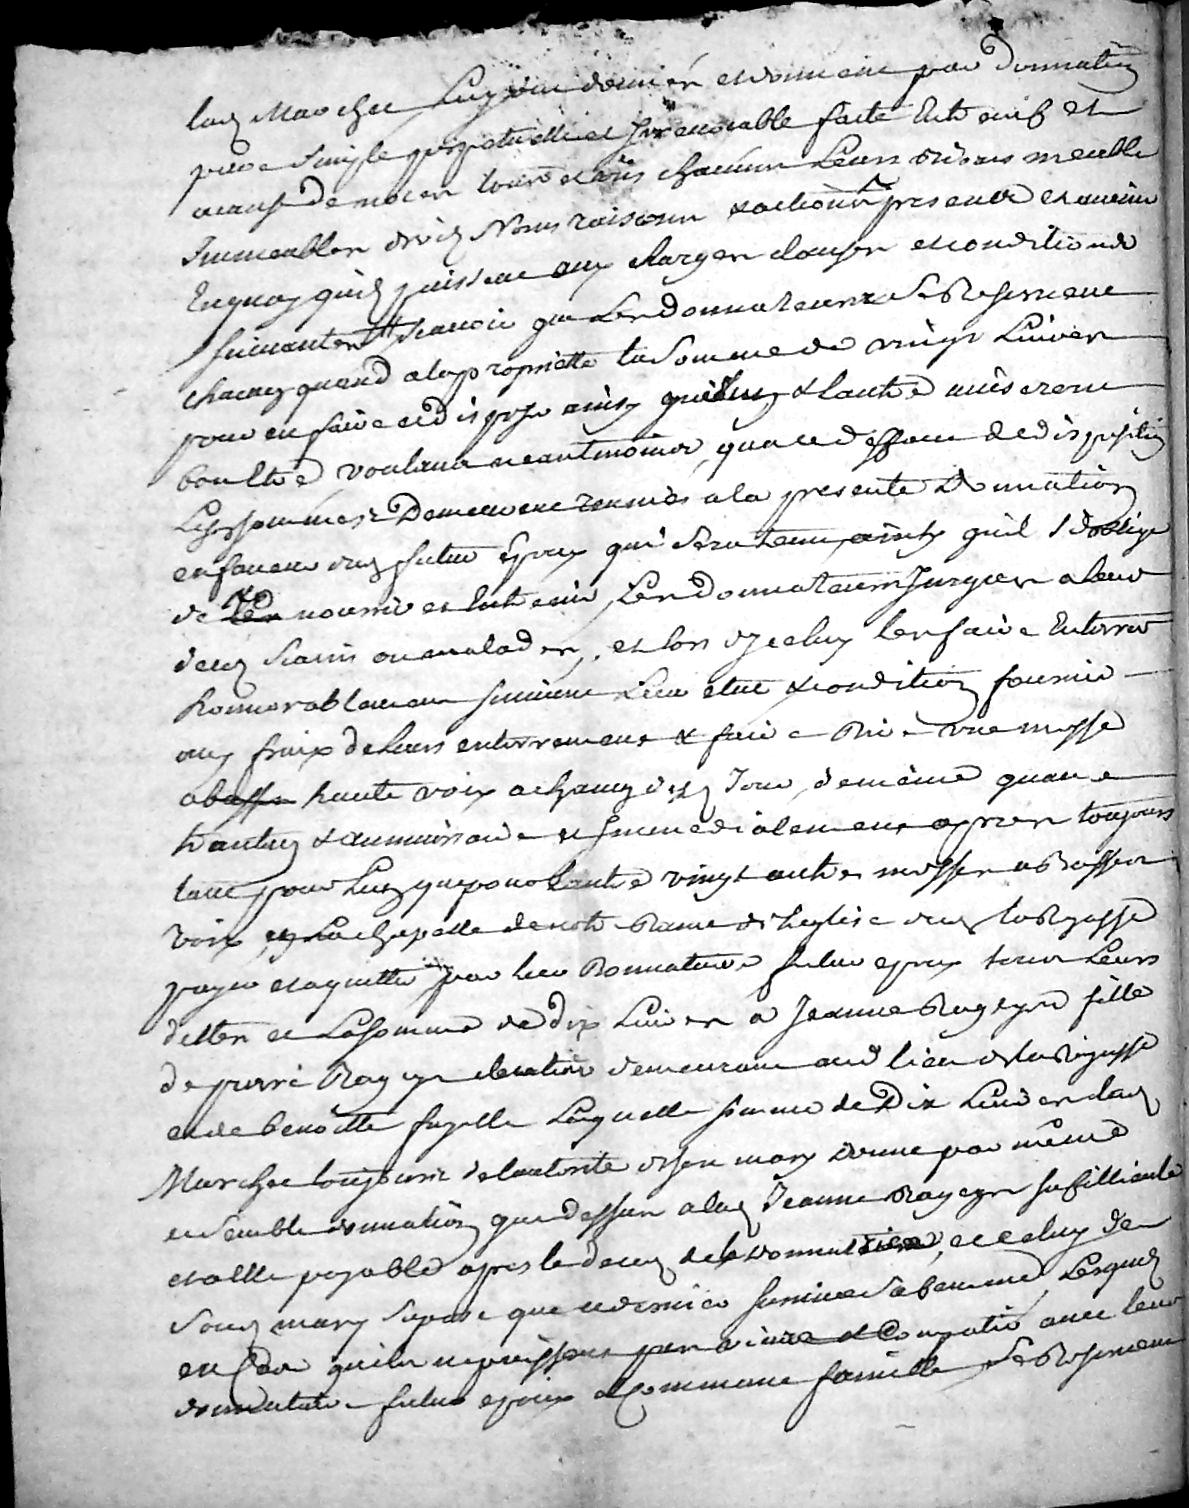 lad Marchee donnent par donnation
pure simple perpetuelle et Irrevocable faite Entre vifs et
a cause de noces tous et chacuns Leurs biens meubles
Immeubles droits Noms raisons & actions presents et avenir
En quoy quils puissent aux charges clauses et conditions
suivantes scavoir que Les donnateurs se Reservent
chacun quand a la propriette la somme de vingt Livres
pour en faire et disposer ainsy que Lun & Lautre aviseront
voulant neantmoins, qua ce deffaut de disposition
Lesd sommes Demeurent reunies a la presente Donnation
en faveur dud futur Epoux qui sera tenu, ainsy quil s'oblige
de nourrir et Entretenir, Les Donnateurs Jusques a leur
deces sains ou malades, et lors dyceluy les faire Enterrer
honnorablement suivant Leur etat & condition fournir
aux fraix de Leurs enterrements & faire Dire une messe
a haute voix a chacun desd Jour, de même quarante
& anniversaire et Immediatement apres toujours
tant pour Lun que pour Lautre vingt autres messes a Basse
voix, en La chapelle de notre Dame de Leglise dud
payer et acquitter par leur Donnataire futur epoux tous Leurs
dettes et La somme de dix Livres a Jeanne fille
de pierre demeurant aud lieu de
et de benoitte fayolle Laquelle somme de Dix Livres lad
Marchee toujours de lautorite de son mary donne par même
ensemble donnation que dessus a lad Jeanne sa fillieule
et a elle payable apres le deces de la donnatrice, et celuy de
sond mary suposé que ce dernier survive sa femme, Lesquels
en Cas quils ne puissent pas vivre & Compatir avec leur
donnataire futur epoux a Commune famille se Reservent